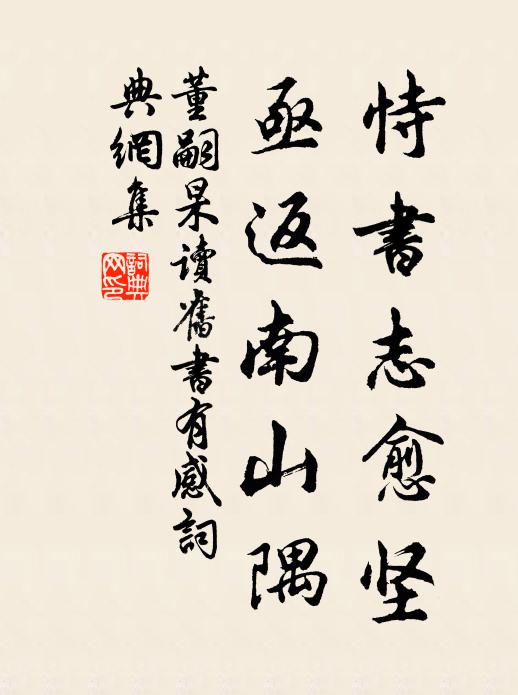 恃書志愈坚
亟返南山隅
董嗣杲讀舊書有感詞
典網集
詞典网印